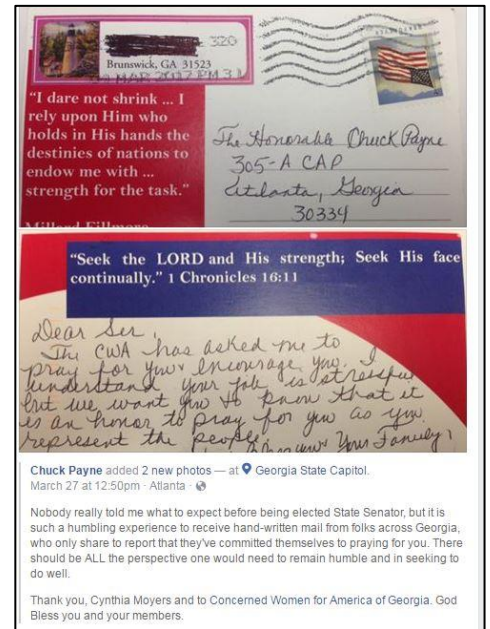 320
Brunswick, GA 31523
MAR 2017 PM 3 L
"I dare not shrink ... I
rely upon Him who
holds in His hands the
destinies of nations to
endow me with ...
strength for the task."
Millard Fillmore
The Honorable Chuck Payne
305-A CAP
Atlanta, Georgia
30334
"Seek the LORD and His strength; Seek His face
continually." 1 Chronicles 16:11
Dear Sir,
The CWA has asked me to
pray for you & encourage you. I
understand your job is stressful
but we want you to know that it
is an honor to pray for you as you
represent the people.
Your Family,
Chuck Payne added 2 new photos — at Georgia State Capitol.
March 27 at 12:50pm · Atlanta ·
Nobody really told me what to expect before being elected State Senator, but it is
such a humbling experience to receive hand-written mail from folks across Georgia,
who only share to report that they've committed themselves to praying for you. There
should be ALL the perspective one would need to remain humble and in seeking to
do well.
Thank you, Cynthia Moyers and to Concerned Women for America of Georgia. God
Bless you and your members.